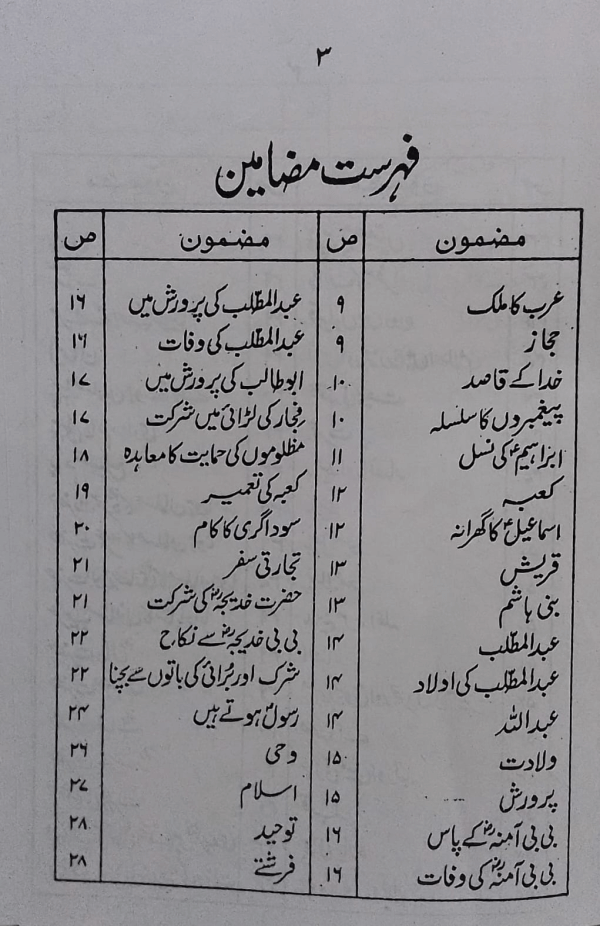 ۳
فہرست مضامین
مضمون ص مضمون ص
عرب کا ملک ۹ عبدالمطلب کی پرورش میں ۱۶
حجاز ۹ عبدالمطلب کی وفات ۱۶
خدا کے قاصد ۱۰ ابوطالب کی پرورش میں ۱۷
پیغمبروں کا سلسلہ ۱۰ فِجار کی لڑائی میں شرکت ۱۷
ابراہیمؑ کی نسل ۱۱ مظلوموں کی حمایت کا معاہدہ ۱۸
کعبہ ۱۲ کعبہ کی تعمیر ۱۹
اسماعیلؑ کا گھرانہ ۱۲ سوداگری کا کام ۲۰
قریش ۱۳ تجارتی سفر ۲۱
بنی ہاشم ۱۳ حضرت خدیجہؓ کی شرکت ۲۱
عبدالمطلب ۱۴ بی بی خدیجہؓ سے نکاح ۲۲
عبدالمطلب کی اولاد ۱۴ شرک اور بُرائی کی باتوں سے بچنا ۲۲
عبداللہ ۱۴ رسولؐ ہوتے ہیں ۲۴
ولادت ۱۵ وحی ۲۶
پرورش ۱۵ اسلام ۲۷
بی بی آمنہؓ کے پاس ۱۶ توحید ۲۸
بی بی آمنہؓ کی وفات ۱۶ فرشتے ۲۸